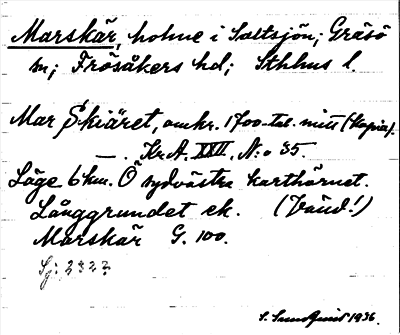 Marskär, holme i Saltsjön; Gräsö
sn; Frösåkers hd; Sthlms l.
Mar Skiäret, omkr. 1700-tal. mitt (Kopia).
— . Kr. A. XXVI, N:o 35.
Läge 6 km. Ö sydvästra karthörnet.
Långgrundet ek. (Vänd!)
Marskär G. 100.
Sj: 2322
S. Sundquist 1936.